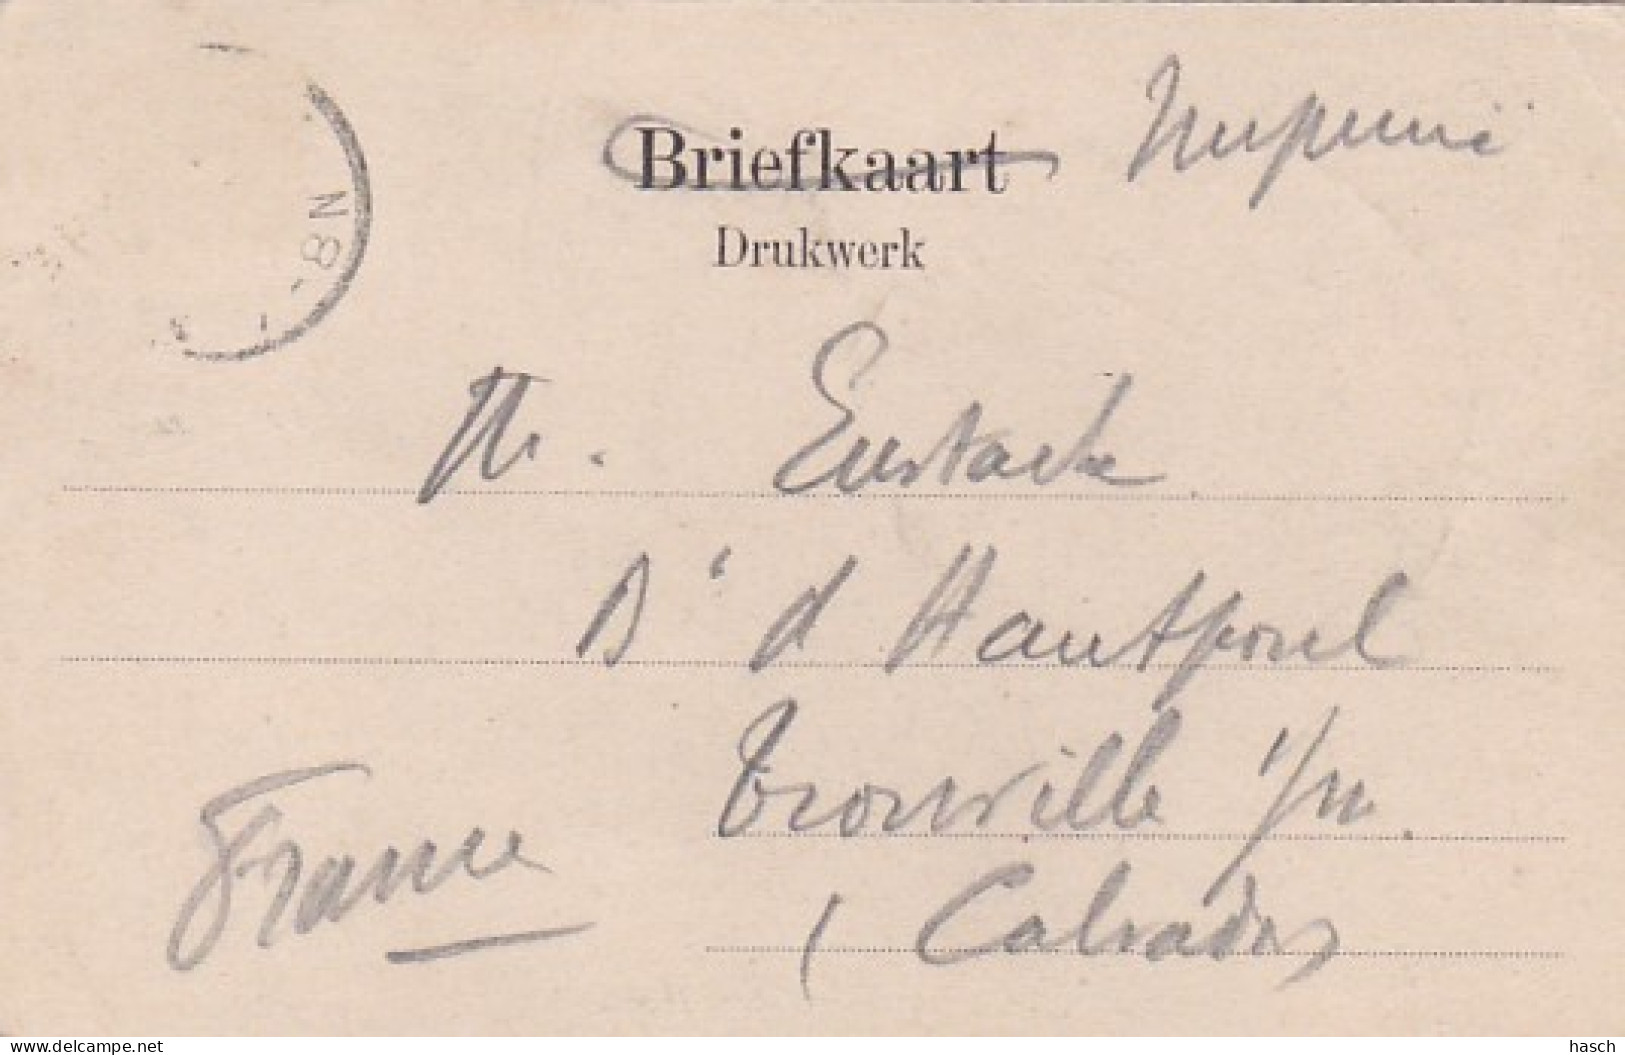 Briefkaart Imprimé
Drukwerk
8N
M. Eustache
Bd d'Hautpoul
Trouville s/m.
France
(Calvados
https://www.delcampe.net
hasch